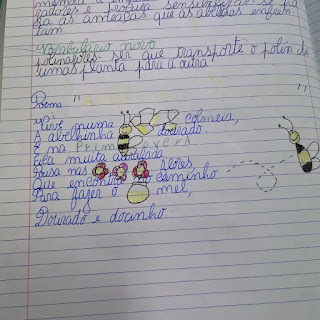 madores e procura sensibilizar-se pa
ra as ameaças que as abelhas enfren
tam.
Vocabulário novo
polinizador- ser que transporta o pólen de
uma planta para a outra
Poema
Vive numa colmeia,
A abelhinha dourado
E na PRIMAVERA
Fica muito
Pousa nas flores
Que encontra no caminho
Para fazer o mel,
Dourado e docinho.